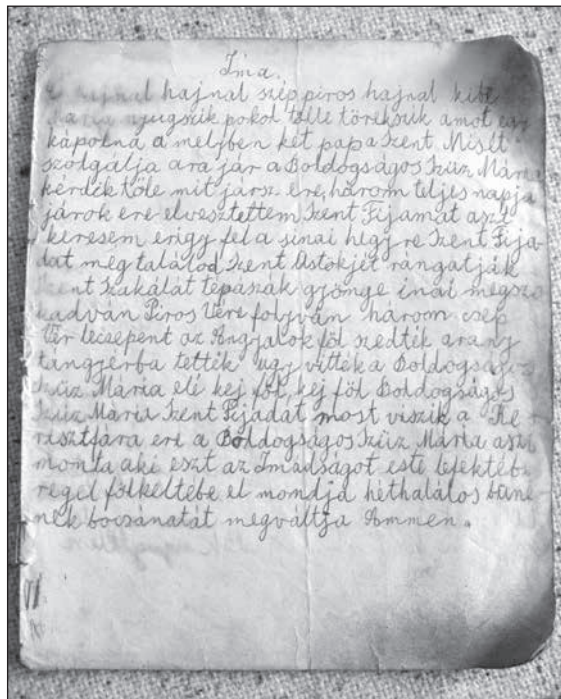 Ima.
hajnal hajnal szép piros hajnal kibe
Mária nyugszik pokol tölle töreksük amot egy
kápolna a meljben két papa Szent Misét
szolgálja ara jár a Boldogságos Szüz Mária
kérdék töle mit jársz ére, három teljes napja
járok ére elvesztettem Szent Fijamat aszt
keresem erigy fel a sinai hegjre Szent Fija-
dat meg találod Szent Üstökjét rángatják
Szent Szakálát tépászák gyönge inai megsza
kadván Piros Vére foljván három csép
Vér lecsepent az Angjalok föl szedték arany
tángjérba tették ugy vitték a Boldogságos
Szüz Mária elé kej föl, kej föl Boldogságos
Szüz Mária Szent Fijadat most viszik a Ke
risztfára ere a Boldogságos Szüz Mária aszt
monta aki eszt az Imádságot este lefektébe
regel fölkeltébe el mondja héthalálos büné-
nek bocsánatát megváltja Ammen.